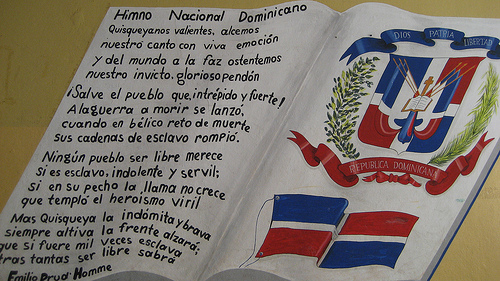 Himno Nacional Dominicano
Quisqueyanos valientes, alcemos
nuestro canto con viva emoción
y del mundo a la faz ostentemos
nuestro invicto, glorioso pendón
¡Salve el pueblo que, intrépido y fuerte!
A la guerra a morir se lanzó,
cuando en bélico reto de muerte
sus cadenas de esclavo rompió.
Ningún pueblo ser libre merece
si es esclavo, indolente y servil;
si en su pecho la llama no crece
que templó el heroísmo viril
Mas Quisqueya la indómita y brava
siempre altiva la frente alzará;
que si fuere mil veces esclava
tras tantas ser libre sabrá
Emilio Prud'Homme
DIOS PATRIA LIBERTAD
REPUBLICA DOMINICANA